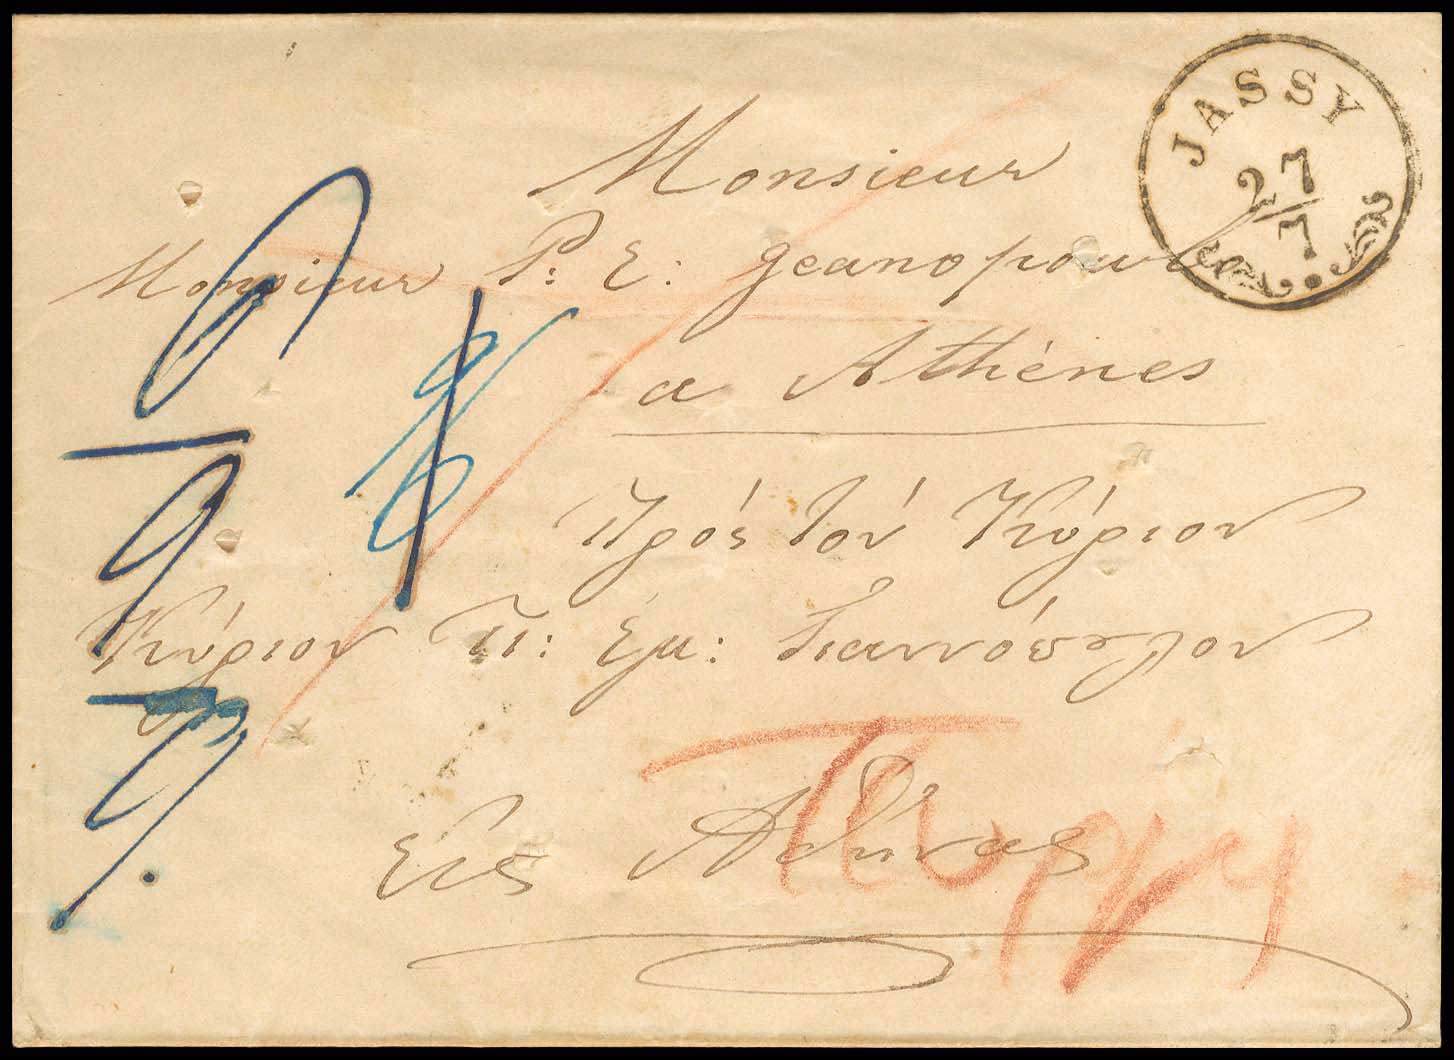 JASSY
27
7
Monsieur
Monsieur P: E: geanopoulo
a Athènes
Πρός τόν Κύριον
Κύριον Π: Εμ: Γιαννόπουλον
Εις Αθήνας